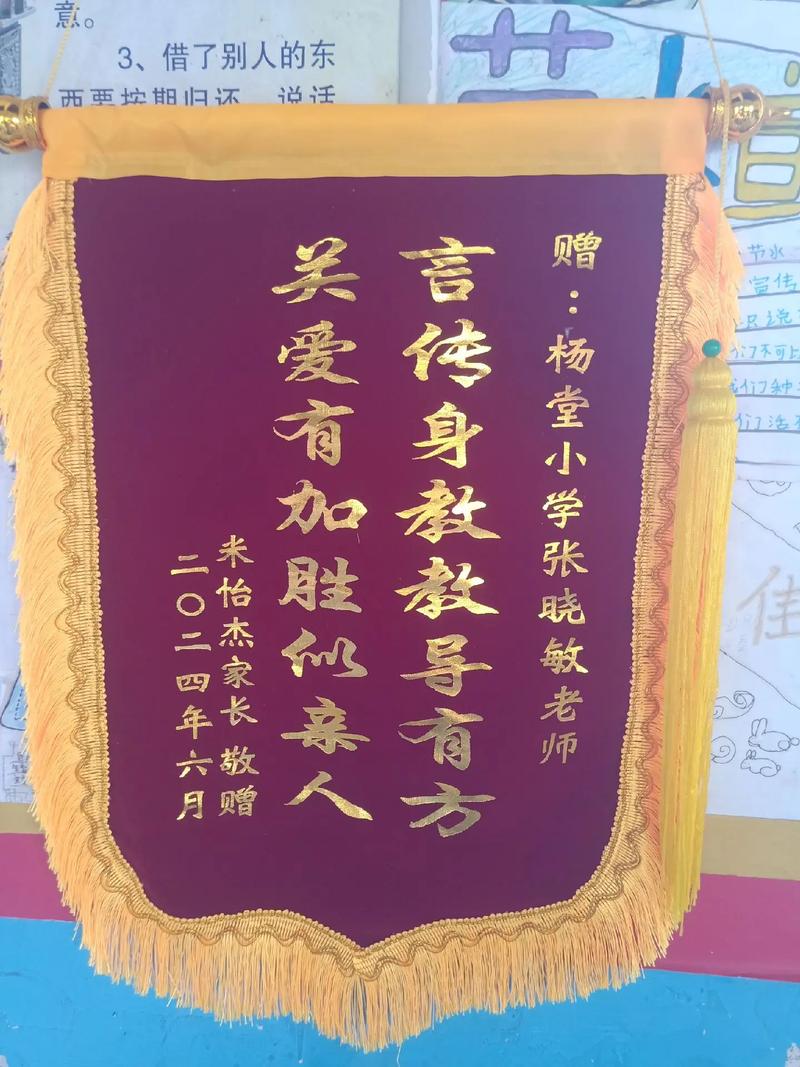 赠：杨堂小学张晓敏老师
言传身教教导有方
关爱有加胜似亲人
来怡杰家长 敬赠
二〇二四年六月
意。
3、借了别人的东
西要按期归还，说话
节水
节水
宣传